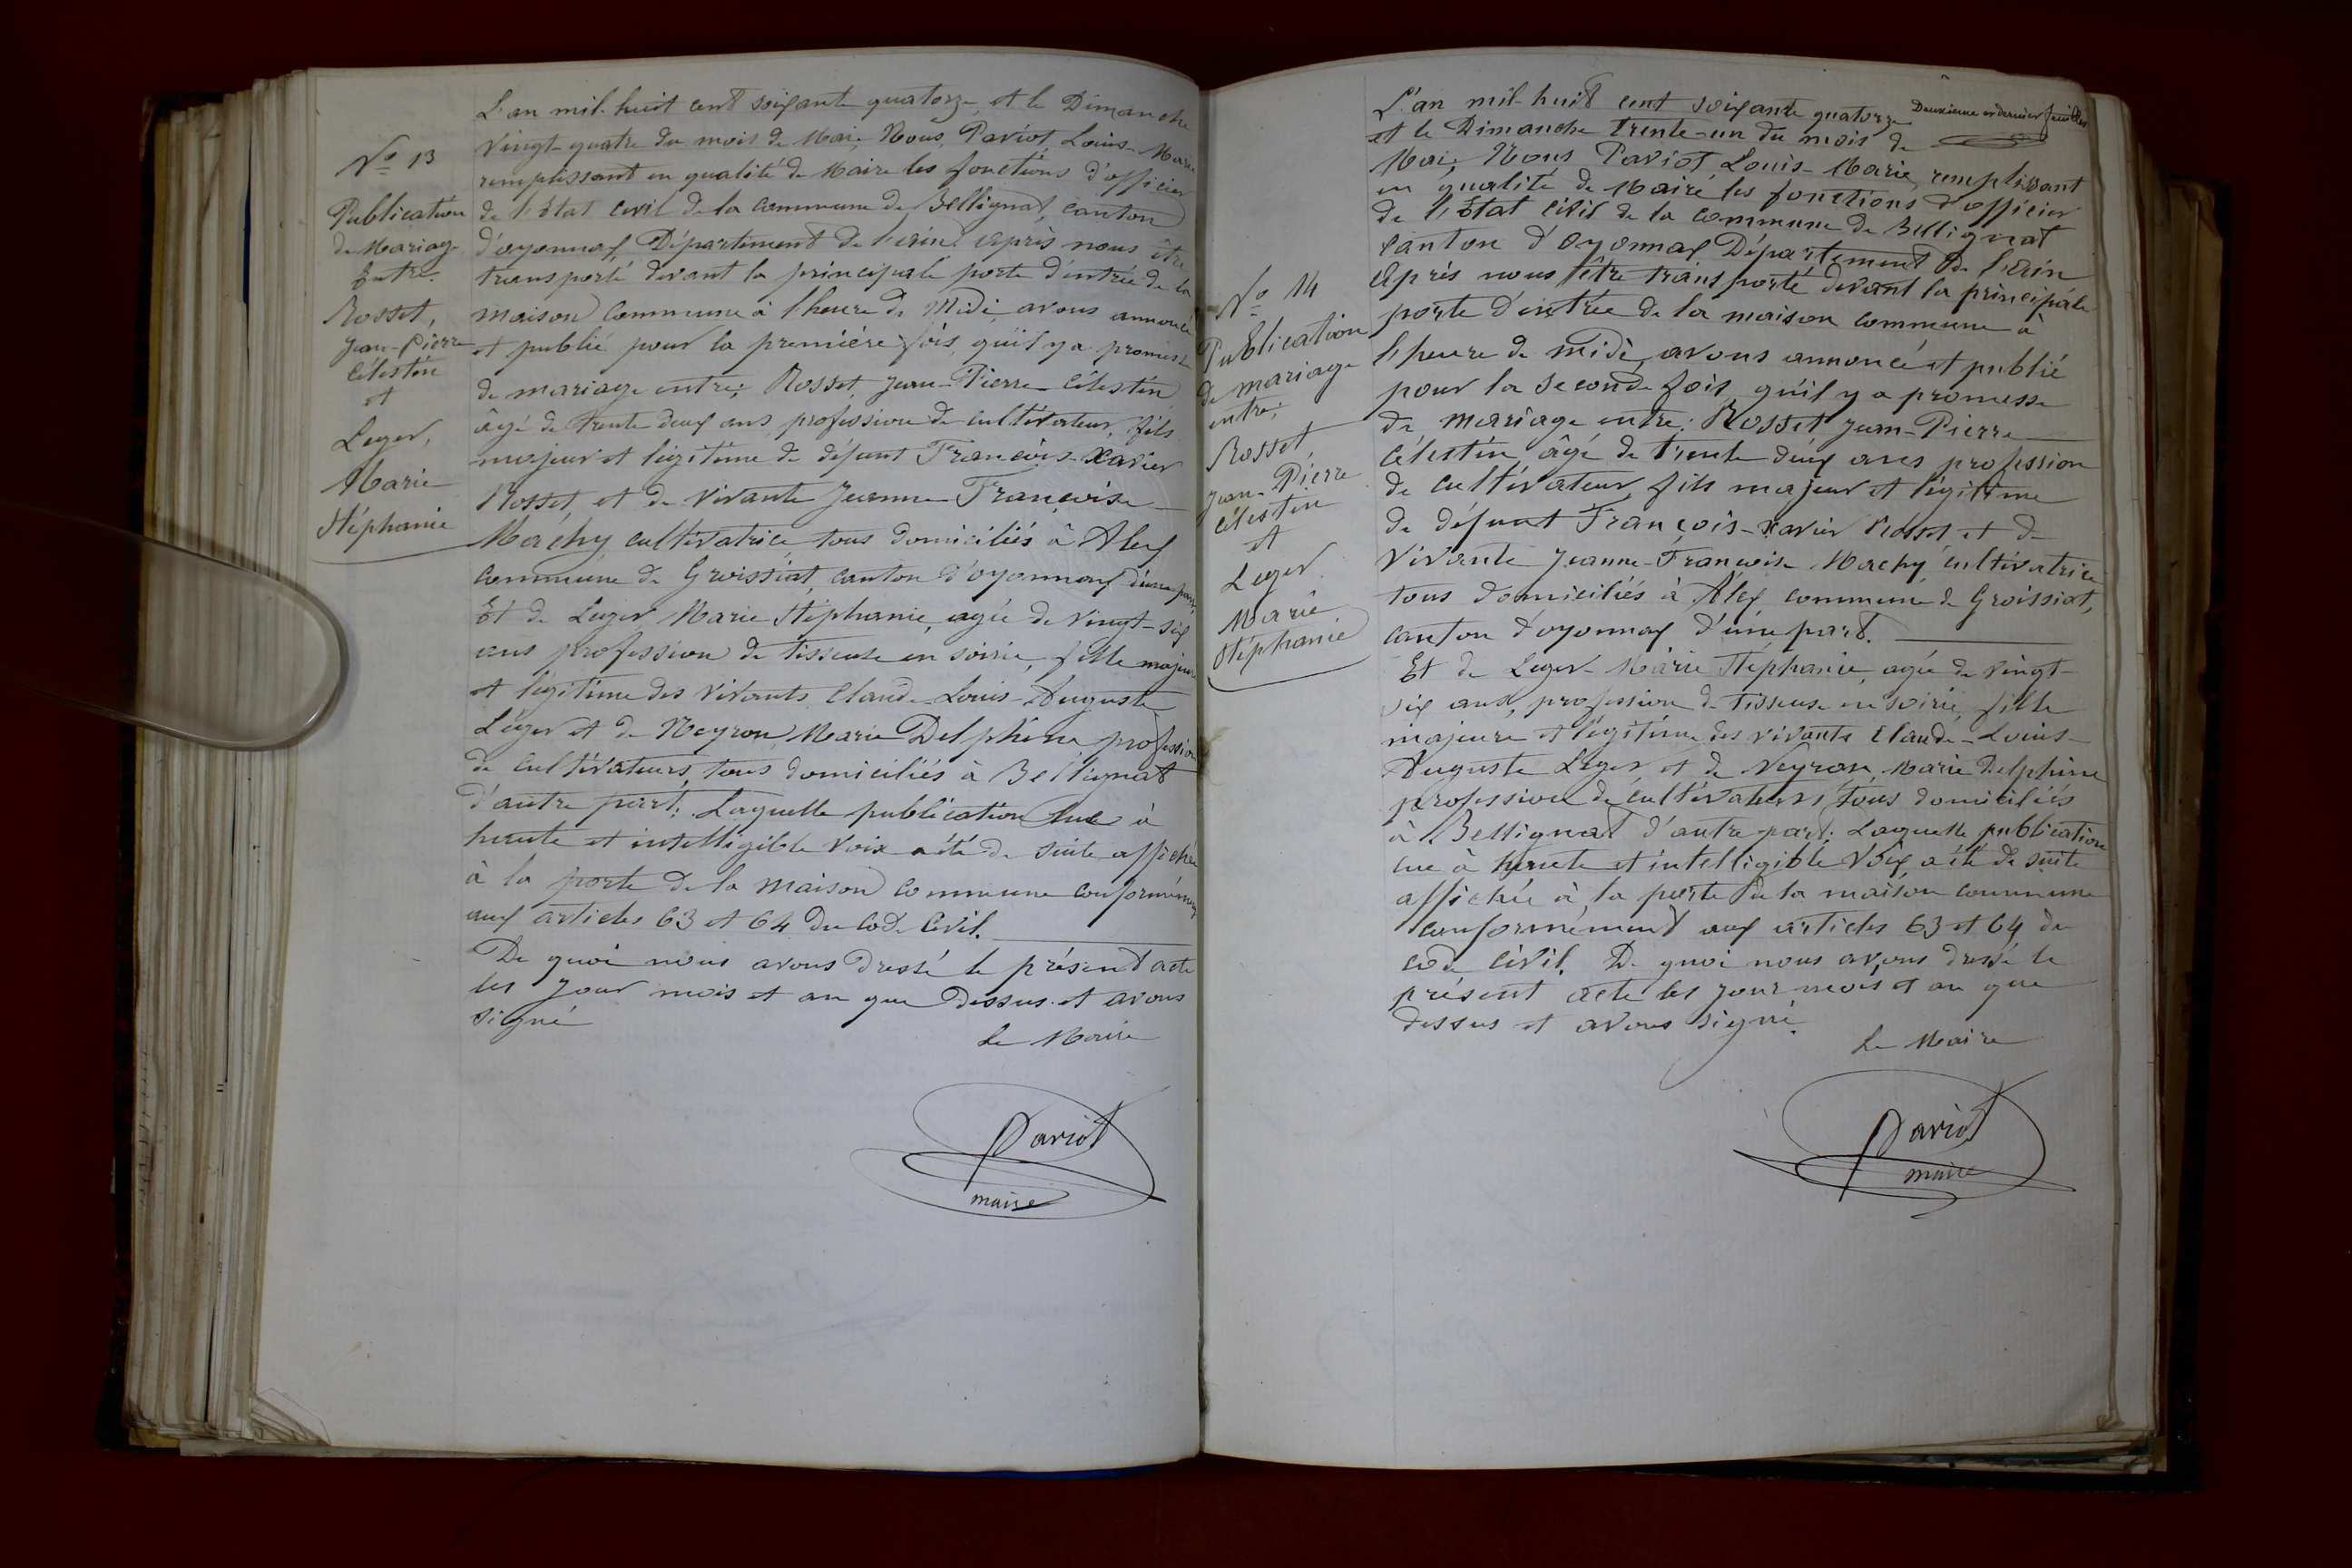 N° 13
Publication
de Mariage
Entre.
Rosset,
Jean-Pierre
Célestin
et
Leger,
Marie
Stéphanie
L'an mil-huit cent soixante quatorze, et le Dimanche
vingt-quatre du mois de Mai. Nous, Pariot, Louis-Marie
remplissant en qualité de Maire les fonctions d'officier
de l'Etat civil de la commune de Bellignat, canton
d'oyonnax, Département de l'ain. après nous être
transporté devant la principale porte d'entrée de la
maison commune à l'heure de Midi, avons annoncé
et publié pour la première fois, qu'il y a promesse
de mariage entre; Rosset, Jean-Pierre-Célestin
âgé de trente deux ans, profession de cultivateur, fils
majeur et légitime de défunt François-Xavier
Rosset, et de vivante Jeanne-Françoise
Machy, cultivatrice, tous domiciliés à Alex
commune de Groissiat, canton d'oyonnax d'une part,
Et de Leger Marie Stéphanie, agée de vingt-six
ans profession de tisseuse en soirie, fille majeure
et légitime des vivants Claude-Louis-Auguste
Léger et de Neyron, Marie Delphine, profession
de cultivateurs, tous domiciliés à Bellignat
d'autre part. Laquelle publication lue à
haute et intelligible voix a été de suite affichée
à la porte de la maison commune conformément
aux articles 63 et 64 du code civil.
De quoi nous avons dressé le présent acte
les jour mois et an que dessus et avons
signé
Le Maire
Pariot
maire
Deuxième et dernier feuillet
N° 14
Publication
de mariage
entre:
Rosset
Jean-Pierre
Célestin
et
Leger
Marie
Stéphanie
L'an mil-huit cent soixante quatorze
et le Dimanche trente-un du mois de
Mai, Nous Pariot Louis-Marie, remplissant
en qualité de Maire les fonctions d'officier
de l'Etat civil de la commune de Bellignat
canton d'oyonnax Département de l'ain
après nous être transporté devant la principale
porte d'entrée de la maison commune à
l'heure de midi, avons annoncé et publié
pour la seconde fois, qu'il y a promesse
de mariage entre: Rosset Jean-Pierre
Célestin, âgé de trente deux ans profession
de cultivateur, fils majeur et légitime
de défunt François-Xavier Rosset et de
vivante Jeanne-Françoise Machy cultivatrice
tous domiciliés à Alex commune de Groissiat,
canton d'oyonnax d'une part.
Et de Leger Marie Stéphanie, agée de vingt-
six ans, profession de tisseuse en soirie, fille
majeure et légitime des vivants Claude-Louis-
Auguste Léger et de Neyron, Marie Delphine
profession de cultivateurs, tous domiciliés
à Bellignat d'autre part. Laquelle publication
lue à haute et intelligible voix a été de suite
affichée à la porte de la maison commune
conformément aux articles 63 et 64 du
code civil. De quoi nous avons dressé le
présent acte les jour mois et an que
dessus et avons signé.
Le Maire
Pariot
maire